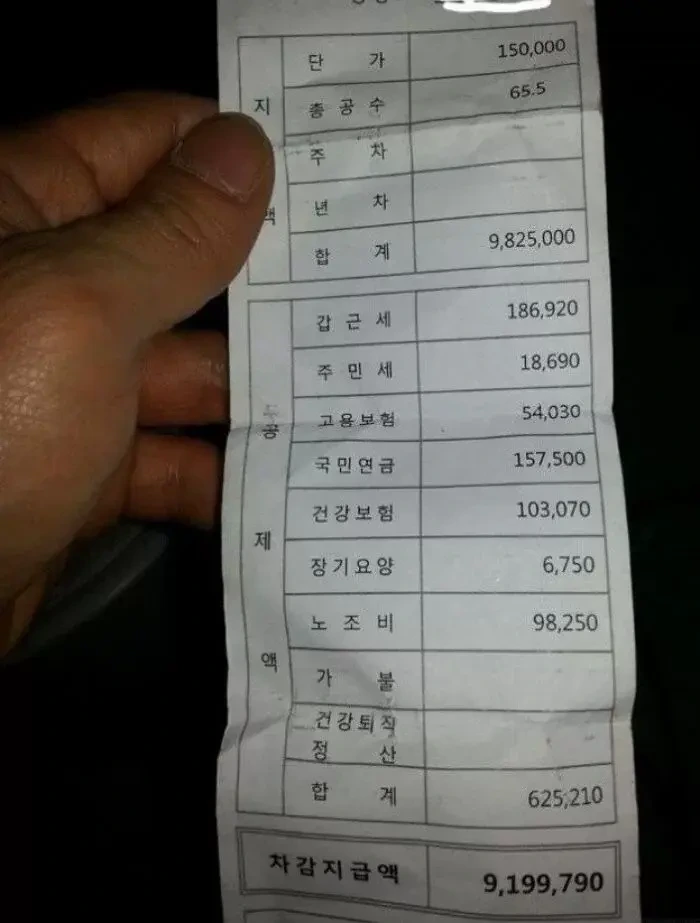 단 가 150,000
지
총 공 수 65.5
주 차
년 차
액
합 계 9,825,000
갑 근 세 186,920
주 민 세 18,690
고용보험 54,030
공
국민연금 157,500
건강보험 103,070
제
장기요양 6,750
노 조 비 98,250
액
가 불
건강퇴직
정 산
합 계 625,210
차감지급액 9,199,790